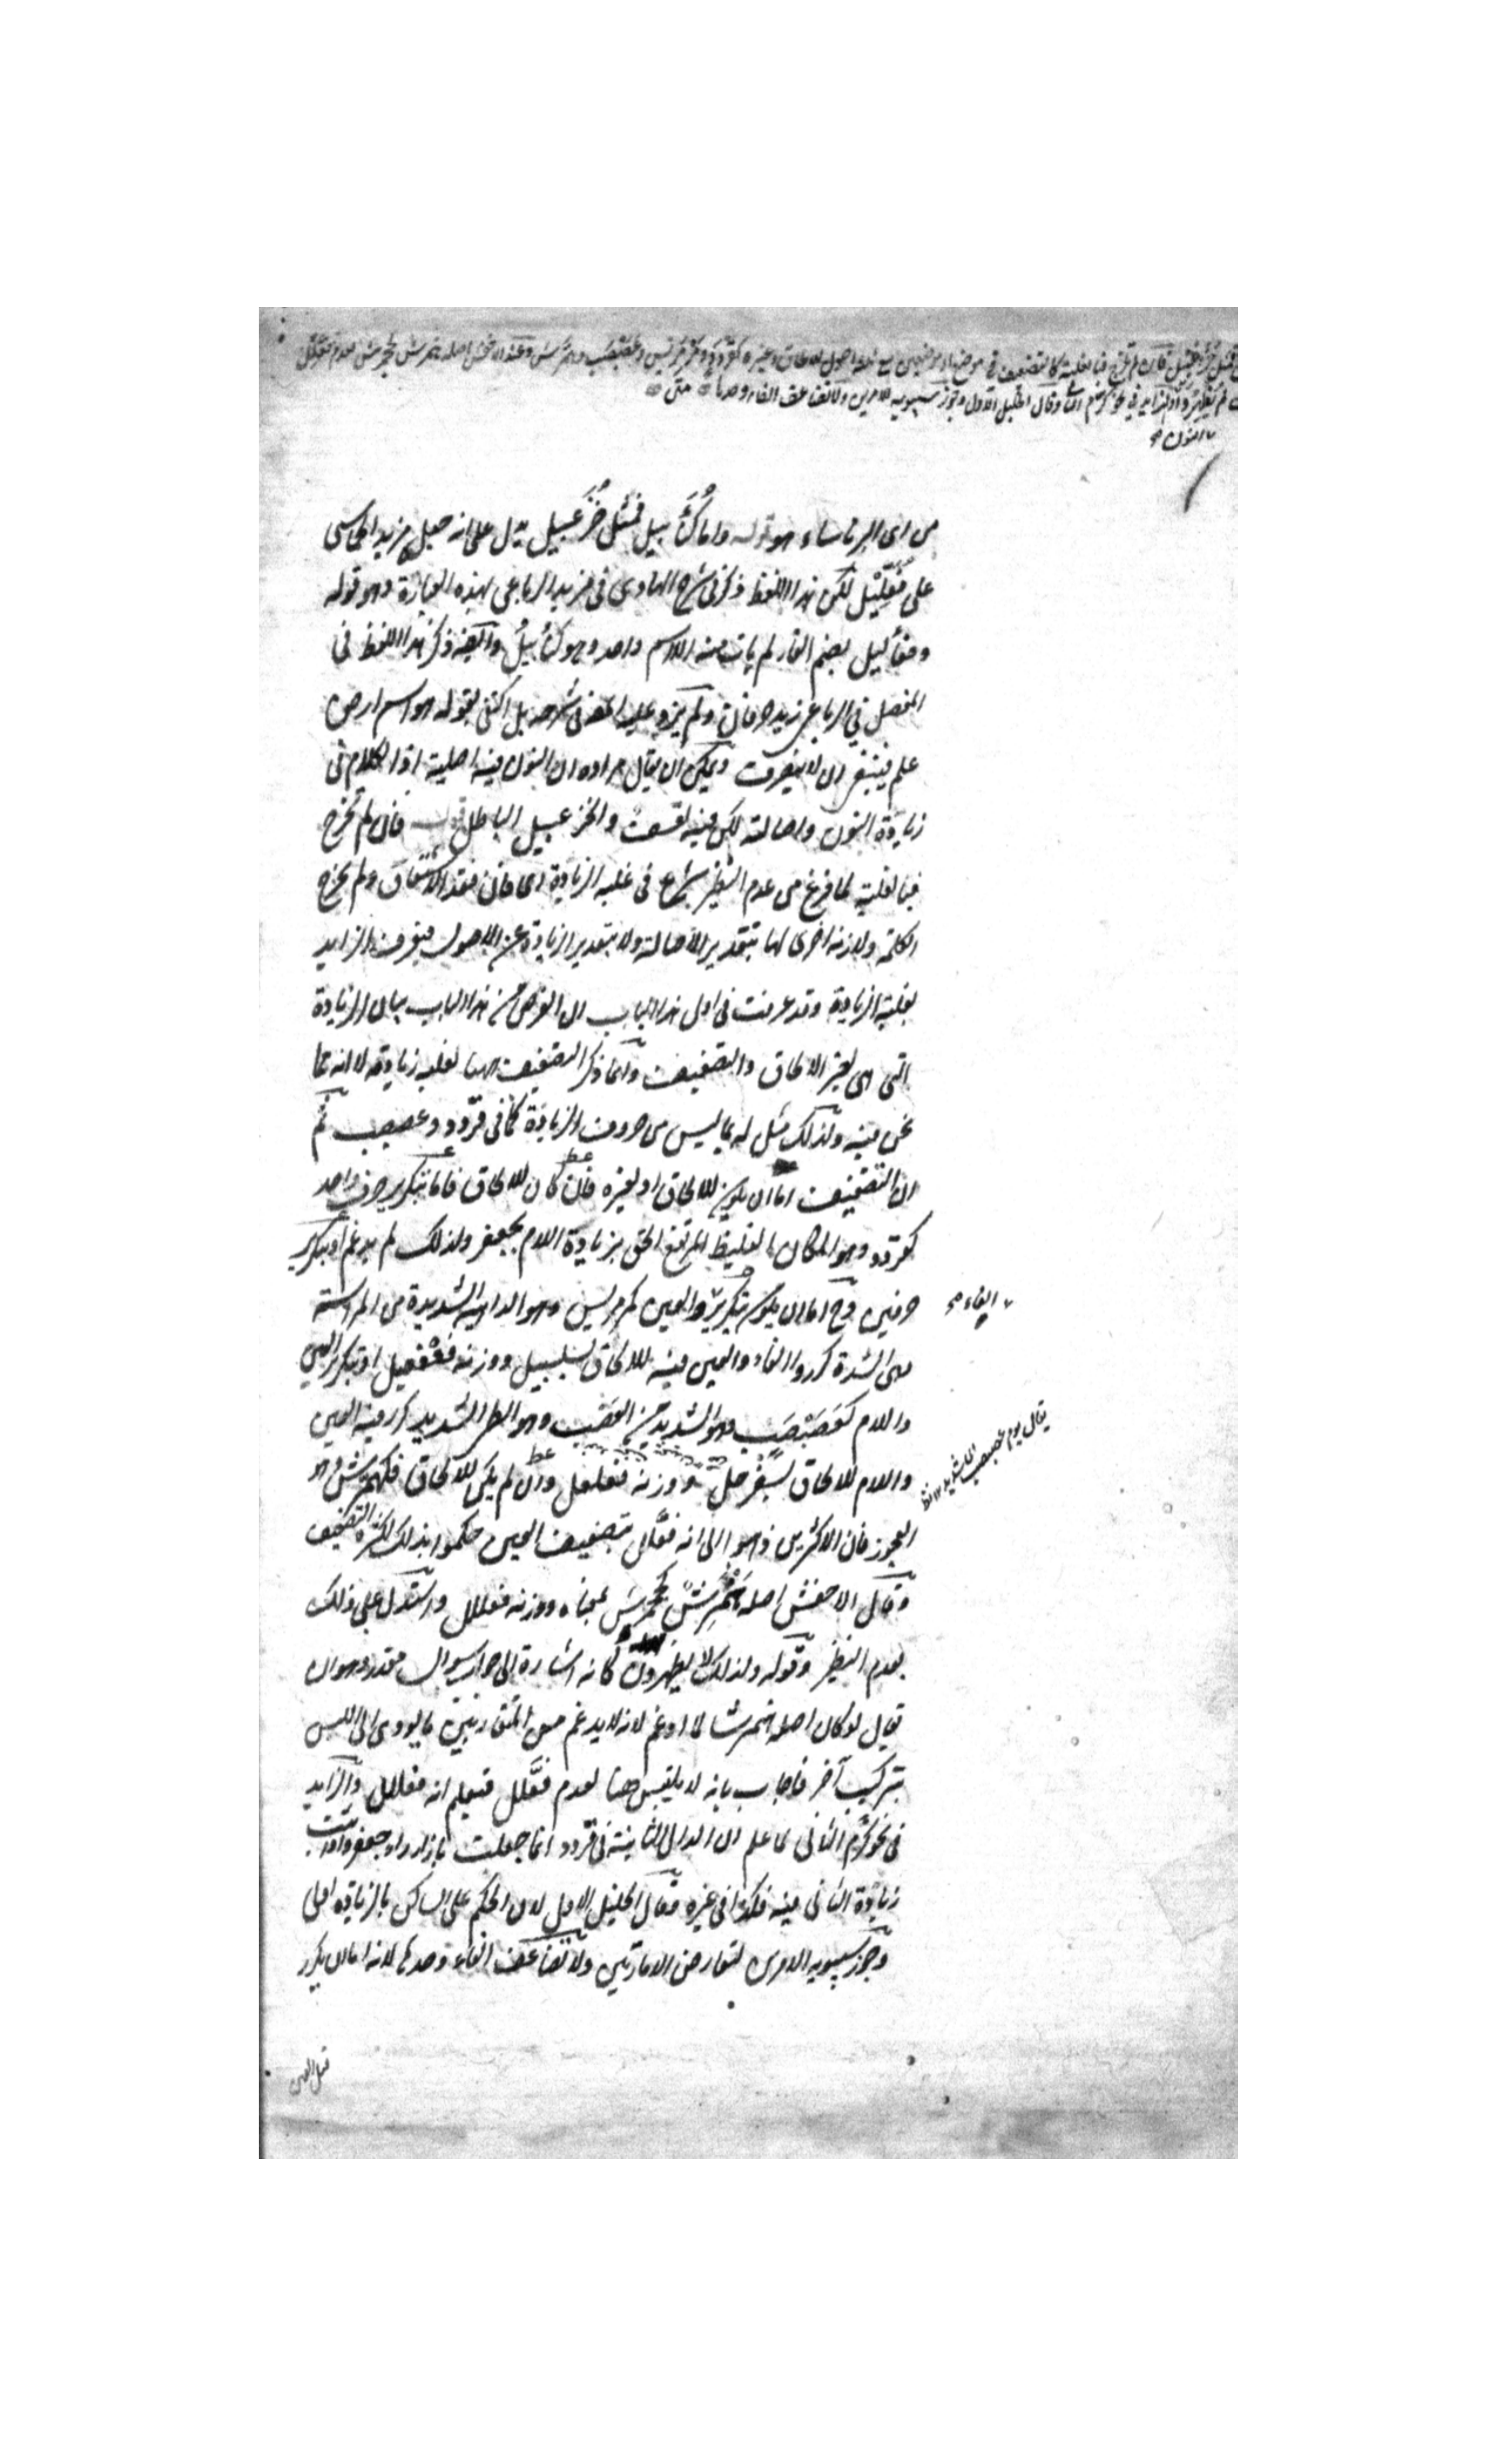 فمثل خزعبيل فان لم تخرج فبالغلبة كالتضعيف فى موضع او موضعين مع ثلثة اصول للالحاق وغيره كقردد ومرمريس وعصبصب وهمرش وعند الاخفش اصله هنمرش كجحمرش لعدم فعلل
لم يظهروا والزايد فى نحو كرم الثانى وقال الخليل الاول وجوز سيبويه الامرين ولا تضاعف الفاء وحدها متن
النون
من اى البرناساء هو قوله واما كنابيل فمثل خزعبيل يدل على انه جعل من مزيد الخماسى
على فعليل لكن هذا اللفظ ذكر فى شرح الهادى فى مزيد الرباعى بهذه العبارة وهو قوله
وفنأليل بضم الفاء لم يات منه الا اسم واحد وهو كنأبيل وايضا ذكر هذا اللفظ فى
المفصل فى الرباعى زيد حرفان ولم يزد عليه المص فى شرحه بل اكتفى بقوله هو اسم ارض
علم فينبغى ان لا ينصرف ويمكن ان يقال مراده ان النون فيه اصلية اذ الكلام فى
زيادة النون واصالته لكن فيه تعسف والخزعبيل الباطل قوله فان لم تخرج
فبالغلبة لما فرغ من عدم النظير شرع فى غلبة الزيادة اى فان فقد الاشتقاق ولم يخرج
الكلمة ولا زنة اخرى لها بتقدير الاصالة ولا بتقدير الزيادة عن الاصول فيعرف الزايد
بغلبة الزيادة وقد عرفت فى اول هذا الباب ان الغرض من هذا الباب بيان الزيادة
التى هى لغير الالحاق والتضعيف وانما ذكر التضعيف ههنا لغلبة زيادته لا انه مما
نحن فيه ولذلك مثل له بما ليس من حروف الزيادة كما فى قردد وعصبصب ثم
ان التضعيف اما ان يكون للالحاق او لغيره فان كان للالحاق فاما بتكرير حرف واحد
كقردد وهو المكان الغليظ المرتفع الحق بزيادة اللام بجعفر ولذلك لم يدغم او بتكرير
حرفين وح اما ان يكون بتكرير والعين كمرمريس وهو الداهية الشديدة من المراسة
الفاء
هى الشدة كرروا الفاء والعين فيه للالحاق بسلسبيل ووزنه فعفعيل او بتكرير العين
واللام كعصبصب وهو الشديد من العصب وهو الطى الشديد كرر فيه العين
يقال يوم عصبصب اى شديد
واللام للالحاق بسفرجل ووزنه فعلعل وان لم يكن للالحاق فكهمرش وهو
العجوز فان الاكثرين ذهبوا الى انه فعلل بتضعيف العين حكموا بذلك لكثرة التضعيف
وقال الاخفش اصله هنمرش كجحمرش بمعناه ووزنه فعللل واستدل على ذلك
بعدم النظير وقوله ولذلك لا يظهرون كانه اشارة الى جواب سوال مقدر وهو ان
يقال لو كان اصله هنمرشا لما ادغم لانه لا يدغم من المتقاربين ما يودى الى اللبس
بتركيب آخر فاجاب بانه لا يلتبس هنا لعدم فعلل فيعلم انه فعللل والزايد
فى نحو كرم الثانى لما علم ان الدال الثانية فى قردد انما جعلت بازاء راء جعفر واذا ثبت
زيادة الثانى فيه فكذا فى غيره وقال الخليل الاول لان الحكم على الساكن بالزيادة اولى
وجوز سيبويه الامرين لتعارض الامارتين ولا تضاعف الفاء وحدها لانه اما ان يكرر
قبل العين